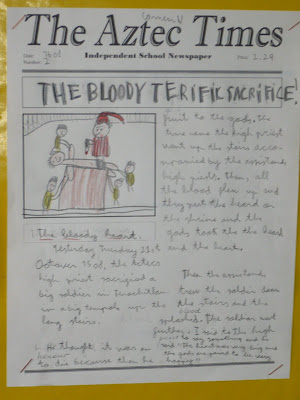 The Aztec Times
Date: 1502
Number: 2
Independent School Newspaper
Price: 1.29
THE BLOODY TERIFIC SACRIFICE!
1. The bloody heard.
Yesterday Tuesday 21st
October 1502, the Aztecs
high priest sacrifised a
big soldier in Tenochtitlan
in a big temple up the
long stairs.
2. He thought it was an
honour
to die because then he
fruit to the gods, the
time came the high priest
went up the stairs acco-
mpanied by the assistands
high pieds, then, all
the blood flew up and
they put the heard on
the shrine and the
gods took the the head
and the heart.
Then the assistands
trew the soldier down
the stairs and the
blood
splashed. The soldier not
to say something and he
said: The heard was very big and
the gods are going to be very
happy!!